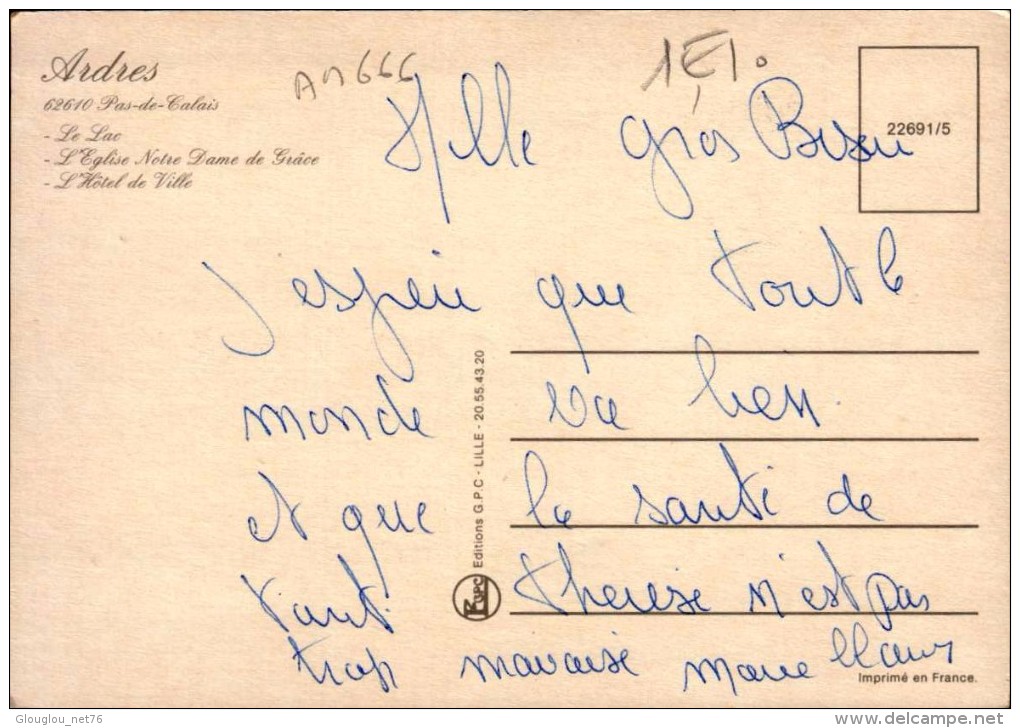 Ardres
62610 Pas-de-Calais
- Le Lac
- L'Eglise Notre Dame de Grâce
- L'Hôtel de Ville
AM666
1€1.
22691/5
Mille gros Bisou
J espere que tout le
monde va bien.
et que la santé de
tant therese n'est pas
trop mavaise Marie
Editions G.P.C - LILLE - 20.55.43.20
GPC
Imprimé en France.
Glouglou_net76
www.delcampe.net